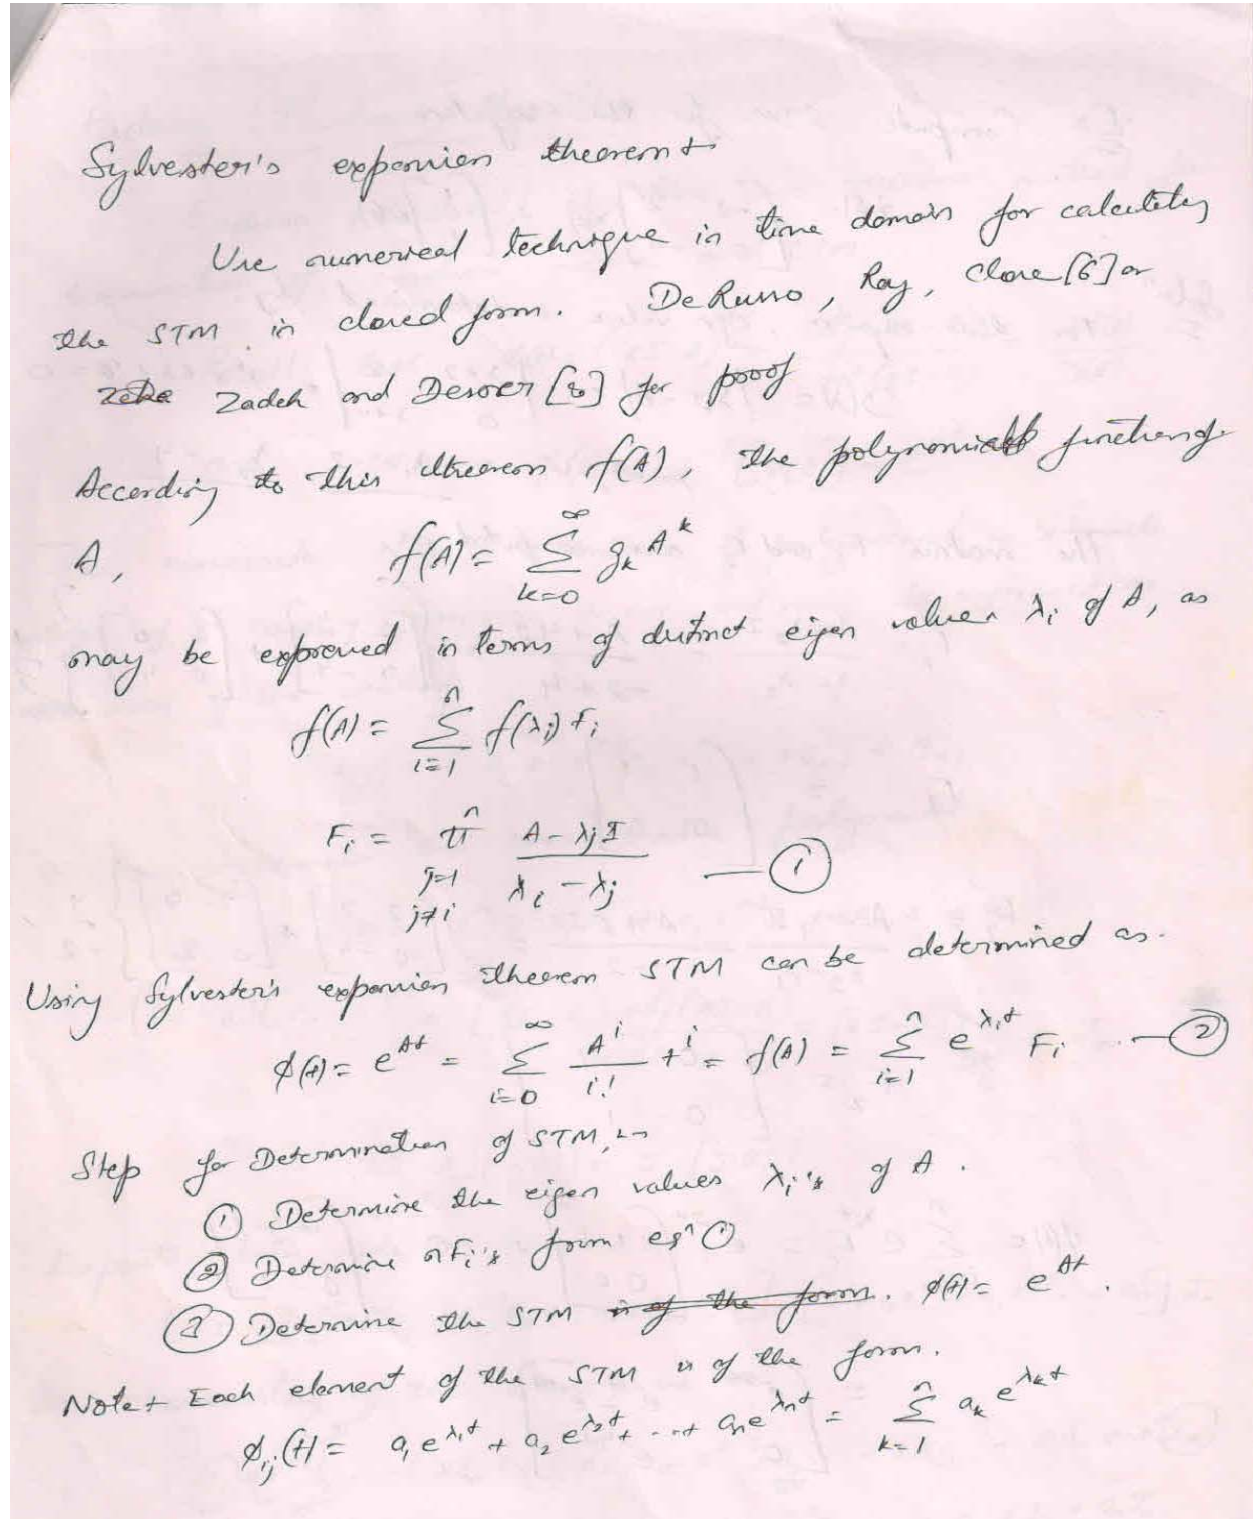 Sylvester's expansion theorem :-
Use numerical technique in time domain for calculating
the STM in closed form. DeRusso, Roy, Close [6] or
Zadeh and Desoer [8] for proof
According to this theorem f(A), the polynomial function of
A, f(A) = ∑_{k=0}^{∞} g_k A^k
may be expressed in terms of distinct eigen values λ_i of A, as
f(A) = ∑_{i=1}^{n} f(λ_i) F_i
F_i = π_{j=1, j≠i}^{n} (A - λ_j I) / (λ_i - λ_j) — ①
Using Sylvester's expansion theorem STM can be determined as.
ϕ(t) = e^{At} = ∑_{i=0}^{∞} A^i / i! t^i = f(A) = ∑_{i=1}^{n} e^{λ_i t} F_i — ②
Step for Determination of STM,
① Determine the eigen values λ_i's of A.
② Determine n F_i's from eqn ①
③ Determine the STM is of the form. ϕ(t) = e^{At}.
Note :- Each element of the STM is of the form.
ϕ_{ij}(t) = a_1 e^{λ_1 t} + a_2 e^{λ_2 t} + ... + a_n e^{λ_n t} = ∑_{k=1}^{n} a_k e^{λ_k t}